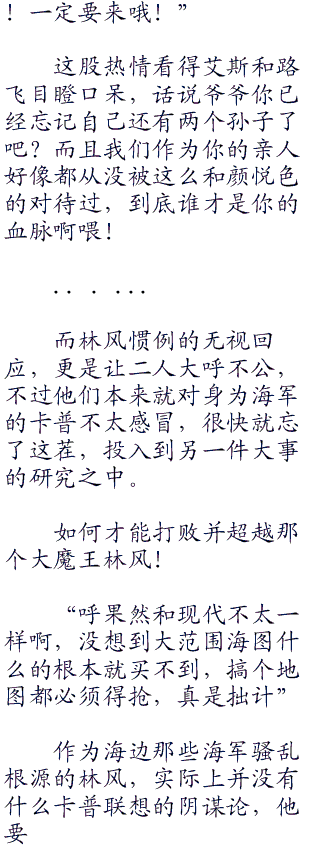 ！一定要来哦！”
这股热情看得艾斯和路
飞目瞪口呆，话说爷爷你已
经忘记自己还有两个孙子了
吧？而且我们作为你的亲人
好像都从没被这么和颜悦色
的对待过，到底谁才是你的
血脉啊喂！
．．．．．．
而林风惯例的无视回
应，更是让二人大呼不公，
不过他们本来就对身为海军
的卡普不太感冒，很快就忘
了这茬，投入到另一件大事
的研究之中。
如何才能打败并超越那
个大魔王林风！
“呼果然和现代不太一
样啊，没想到大范围海图什
么的根本就买不到，搞个地
图都必须得抢，真是拙计”
作为海边那些海军骚乱
根源的林风，实际上并没有
什么卡普联想的阴谋论，他
要